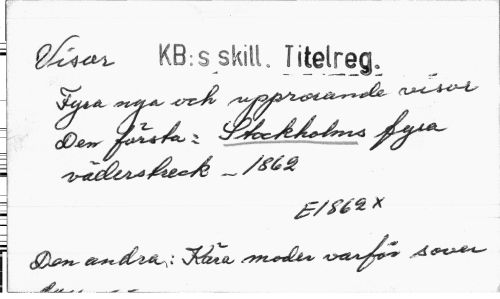 Visor KB:s skill. Titelreg.
Fyra nya och upprosande visor
Den första: Stockholms fyra
väderstreck _ 1862
E1862 x
Den andra: Kära moder varför sover